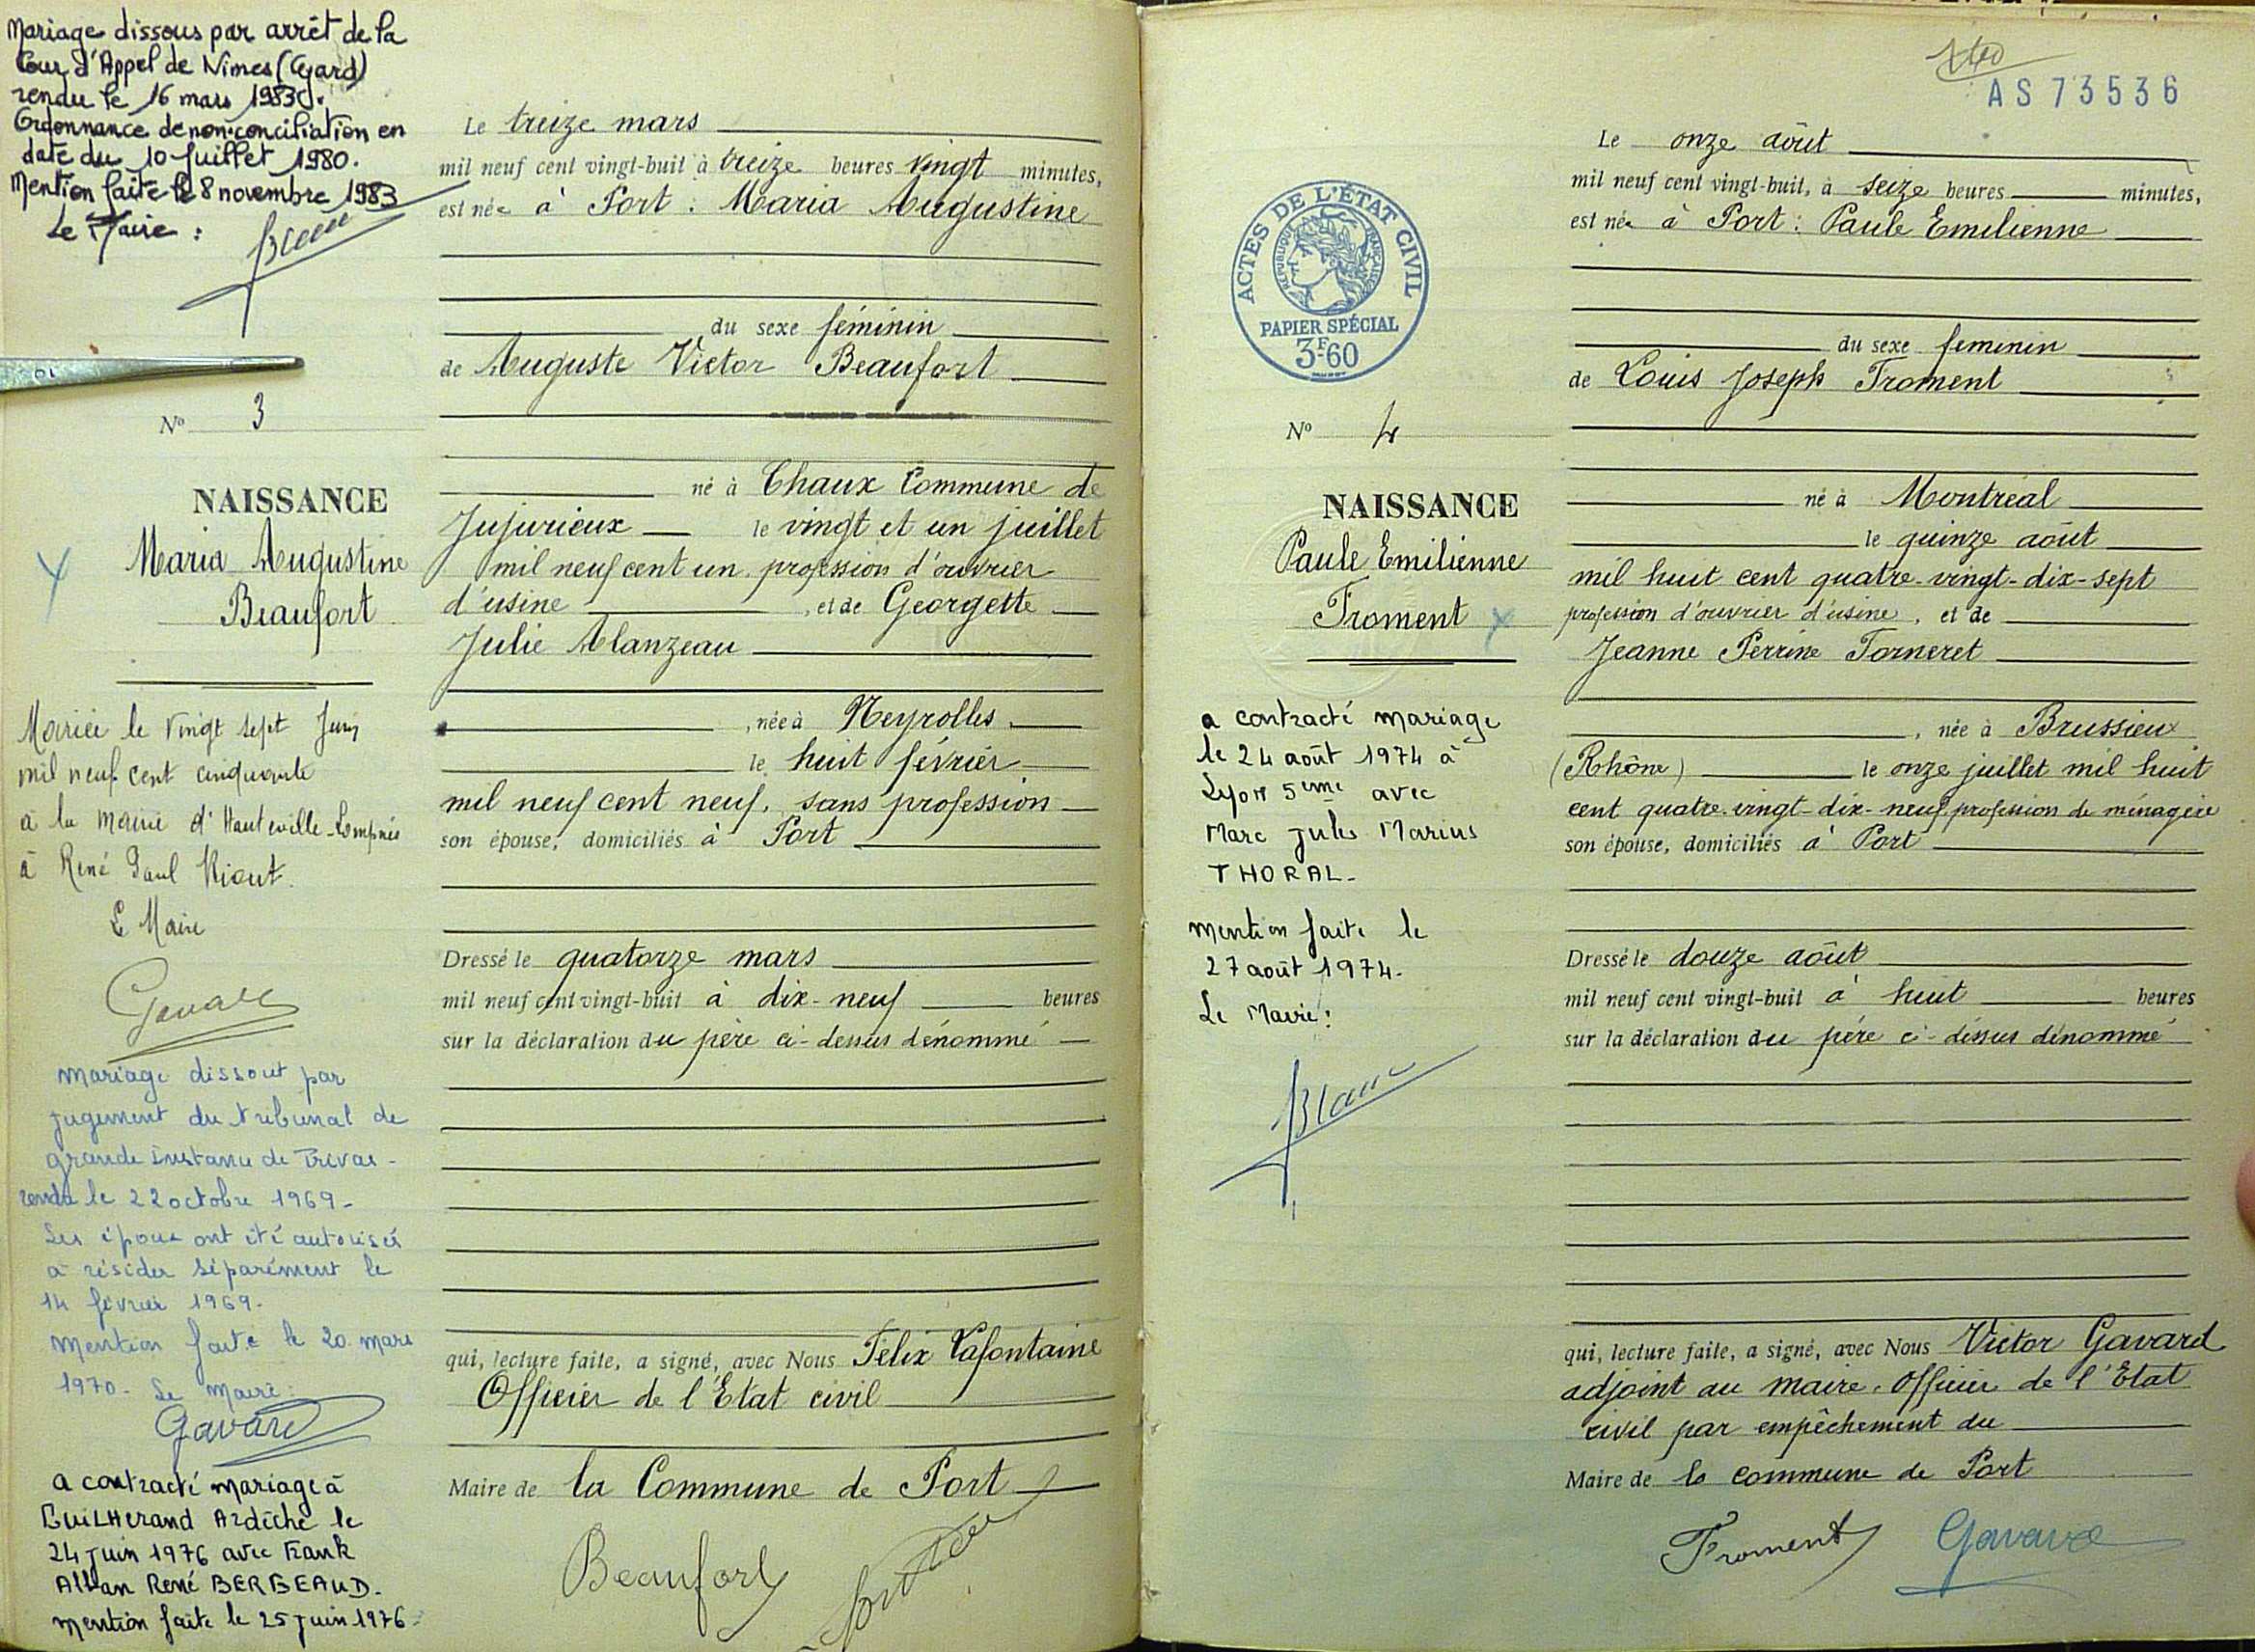 Mariage dissous par arrêt de la
Cour d'Appel de Nîmes (Gard)
rendu le 16 mars 1983.
Ordonnance de non-conciliation en
date du 10 juillet 1980.
Mention faite le 8 novembre 1983
Le Maire :
N° 3
NAISSANCE
Maria Augustine
Beaufort
Mariée le vingt sept Juin
mil neuf cent cinquante
à la mairie d'Hauteville-Lompnès
à René Paul
Le Maire
Gavard
mariage dissout par
jugement du tribunal de
grande instance de Privas -
rendu le 22 octobre 1969 -
Les époux ont été autorisés
à résider séparément le
14 février 1969.
mention faite le 20 mars
1970. Le Maire :
Gavard
a contracté mariage à
GUILHerand Ardèche le
24 juin 1976 avec Frank
Alban René BERBEAUD.
mention faite le 25 juin 1976.
Le treize mars
mil neuf cent vingt-huit à treize heures vingt minutes,
est née à Port : Maria Augustine
du sexe féminin
de Auguste Victor Beaufort
né à Chaux Commune de
Jujurieux le vingt et un juillet
mil neuf cent un, profession d'ouvrier
d'usine, et de Georgette
Julie Alanzeau
, née à Neyrolles
le huit février
mil neuf cent neuf, sans profession
son épouse, domiciliés à Port
Dressé le quatorze mars
mil neuf cent vingt-huit à dix-neuf heures
sur la déclaration du père ci-dessus dénommé
qui, lecture faite, a signé, avec Nous Félix Lafontaine
Officier de l'Etat civil
Maire de la Commune de Port
Beaufort
140
AS 73536
ACTES DE L'ÉTAT CIVIL
RÉPUBLIQUE FRANÇAISE
PAPIER SPÉCIAL
3F60
N° 4
NAISSANCE
Paule Emilienne
Froment
a contracté mariage
le 24 août 1974 à
Lyon 5eme avec
Marc Jules Marius
THORAL -
mention faite le
27 août 1974.
Le Maire :
Le onze août
mil neuf cent vingt-huit, à seize heures minutes,
est née à Port : Paule Emilienne
du sexe féminin
de Louis Joseph Froment
né à Montréal
le quinze août
mil huit cent quatre-vingt-dix-sept
profession d'ouvrier d'usine, et de
Jeanne Perrine Torneret
, née à Brussieu
(Rhône) le onze juillet mil huit
cent quatre-vingt-dix-neuf, profession de ménagère
son épouse, domiciliés à Port
Dressé le douze août
mil neuf cent vingt-huit à huit heures
sur la déclaration du père ci-dessus dénommé
qui, lecture faite, a signé, avec Nous Victor Gavard
adjoint au maire, Officier de l'Etat
civil par empêchement du
Maire de la commune de Port
Froment Gavard